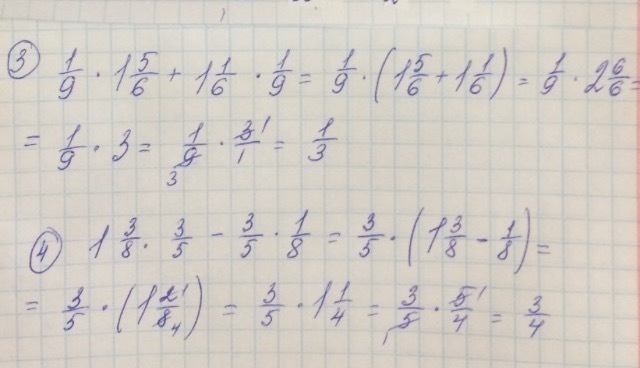 ③ 1/9 · 1 5/6 + 1 1/6 · 1/9 = 1/9 · (1 5/6 + 1 1/6) = 1/9 · 2 6/6 =
= 1/9 · 3 = 1/9 · 3/1 = 1/3
④ 1 3/8 · 3/5 - 3/5 · 1/8 = 3/5 · (1 3/8 - 1/8) =
= 3/5 · (1 2/8) = 3/5 · 1 1/4 = 3/5 · 5/4 = 3/4